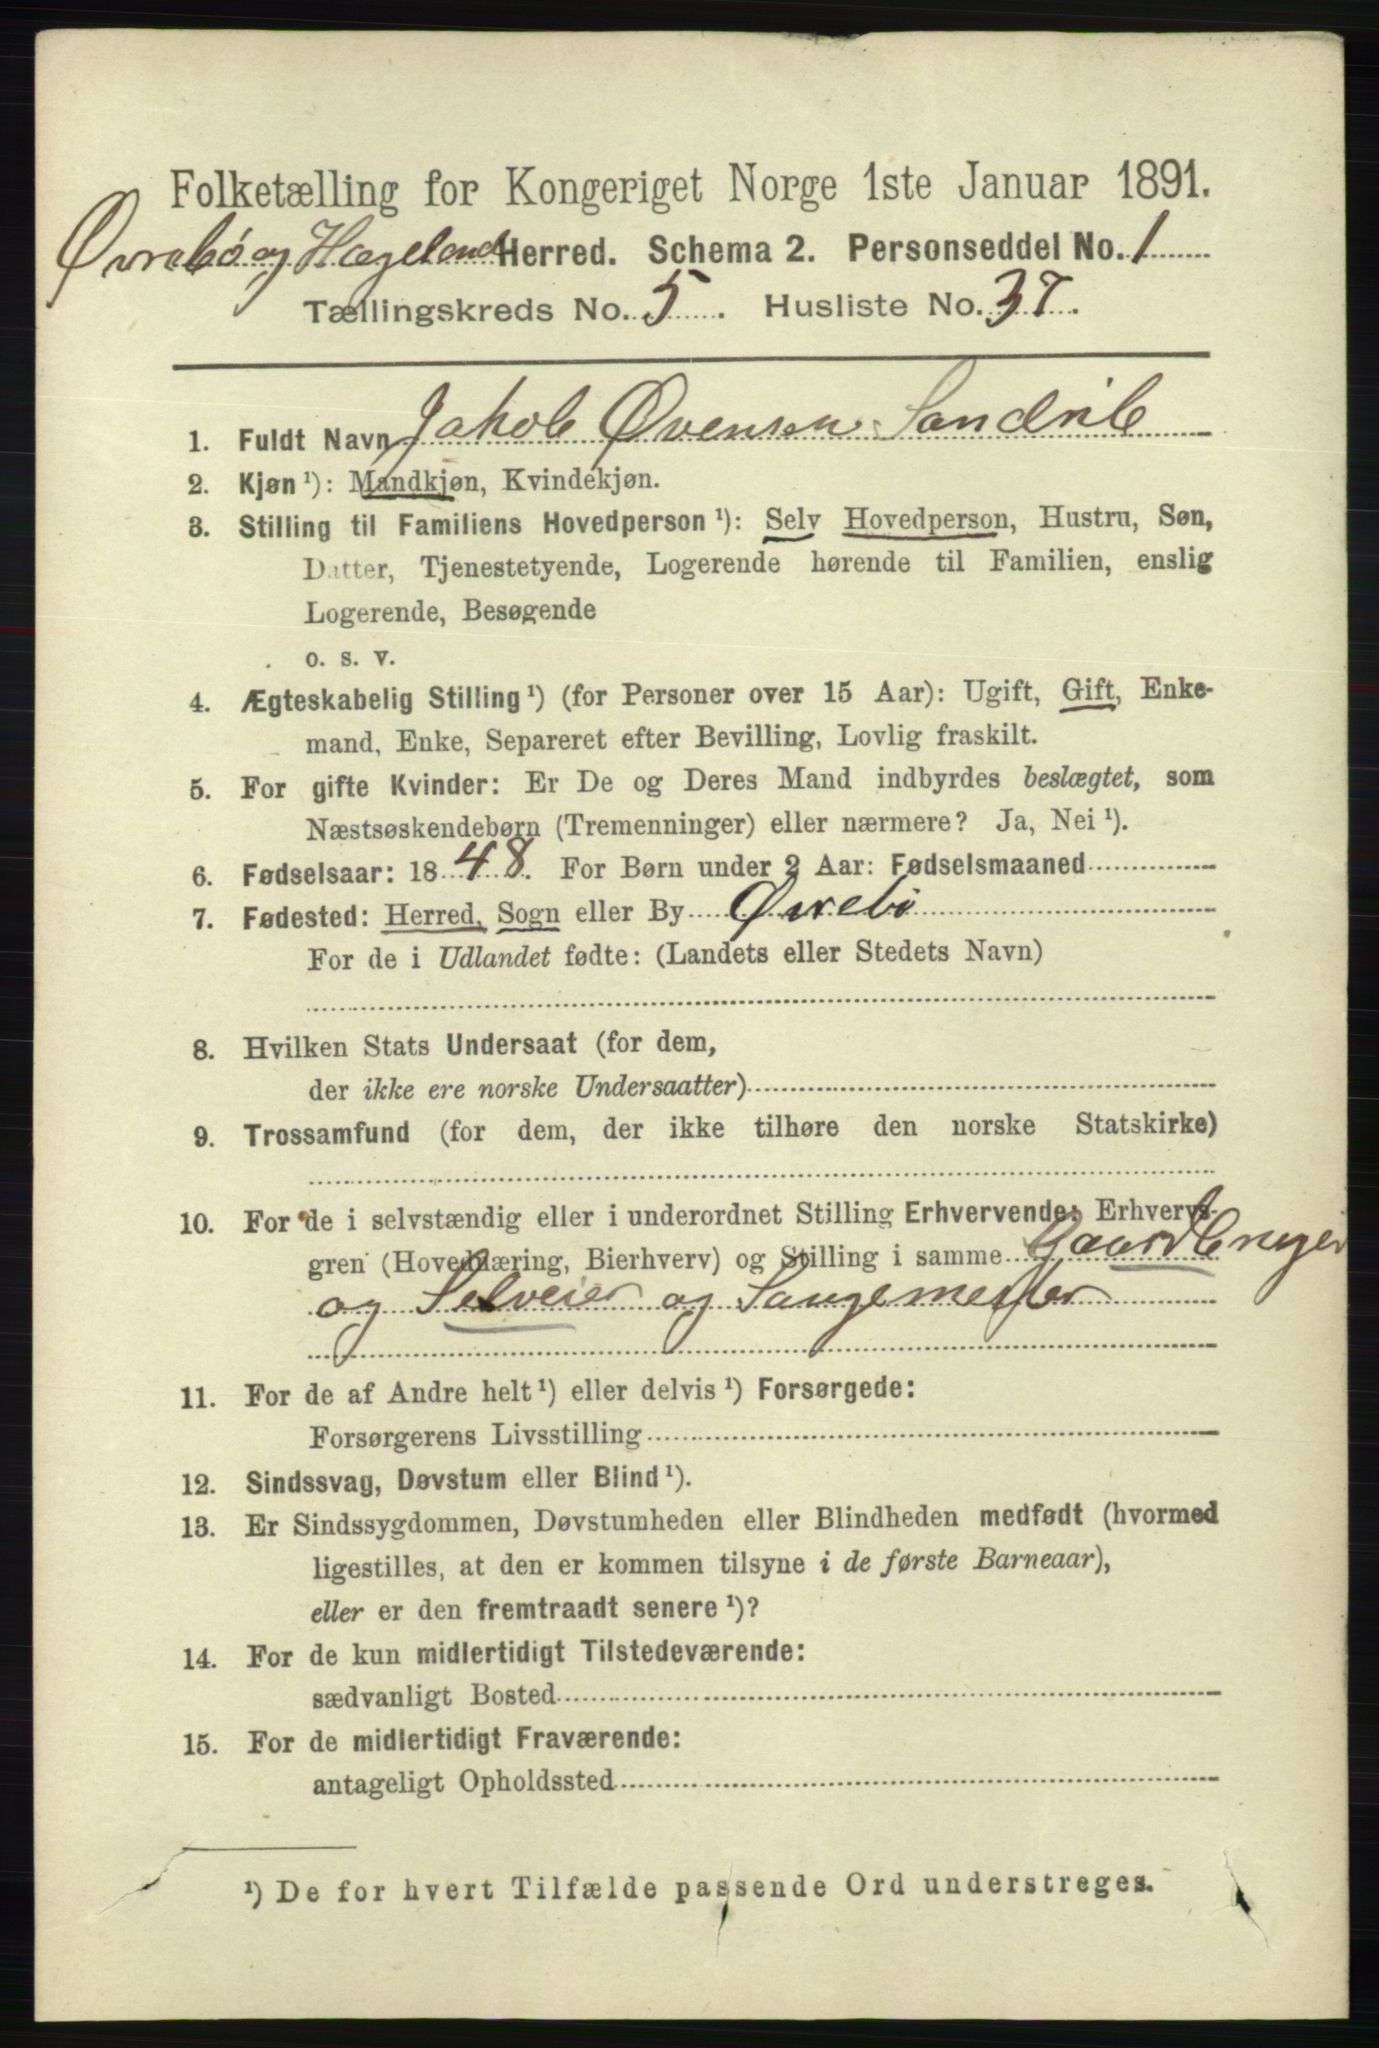 Folketælling for Kongeriget Norge 1ste Januar 1891.
Øvrebö og Hægeland Herred. Schema 2. Personseddel No. 1
Tællingskreds No. 5. Husliste No. 37.
1. Fuldt Navn Jakob Øvensen Sandrib
2. Kjøn ¹): Mandkjøn, Kvindekjøn.
3. Stilling til Familiens Hovedperson ¹): Selv Hovedperson, Hustru, Søn,
Datter, Tjenestetyende, Logerende hørende til Familien, enslig
Logerende, Besøgende
o. s. v.
4. Ægteskabelig Stilling ¹) (for Personer over 15 Aar): Ugift, Gift, Enke-
mand, Enke, Separeret efter Bevilling, Lovlig fraskilt.
5. For gifte Kvinder: Er De og Deres Mand indbyrdes beslægtet, som
Næstsøskendebørn (Tremenninger) eller nærmere? Ja, Nei ¹).
6. Fødselsaar: 1848. For Børn under 2 Aar: Fødselsmaaned
7. Fødested: Herred, Sogn eller By Øvrebö
For de i Udlandet fødte: (Landets eller Stedets Navn)
8. Hvilken Stats Undersaat (for dem,
der ikke ere norske Undersaatter)
9. Trossamfund (for dem, der ikke tilhøre den norske Statskirke)
10. For de i selvstændig eller i underordnet Stilling Erhvervende: Erhvervs-
gren (Hovednæring, Bierhverv) og Stilling i samme Gaardbruger
og Selveier og Saugemester
11. For de af Andre helt ¹) eller delvis ¹) Forsørgede:
Forsørgerens Livsstilling
12. Sindssvag, Døvstum eller Blind ¹).
13. Er Sindssygdommen, Døvstumheden eller Blindheden medfødt (hvormed
ligestilles, at den er kommen tilsyne i de første Barneaar),
eller er den fremtraadt senere ¹)?
14. For de kun midlertidigt Tilstedeværende:
sædvanligt Bosted
15. For de midlertidigt Fraværende:
antageligt Opholdssted
¹) De for hvert Tilfælde passende Ord understreges.